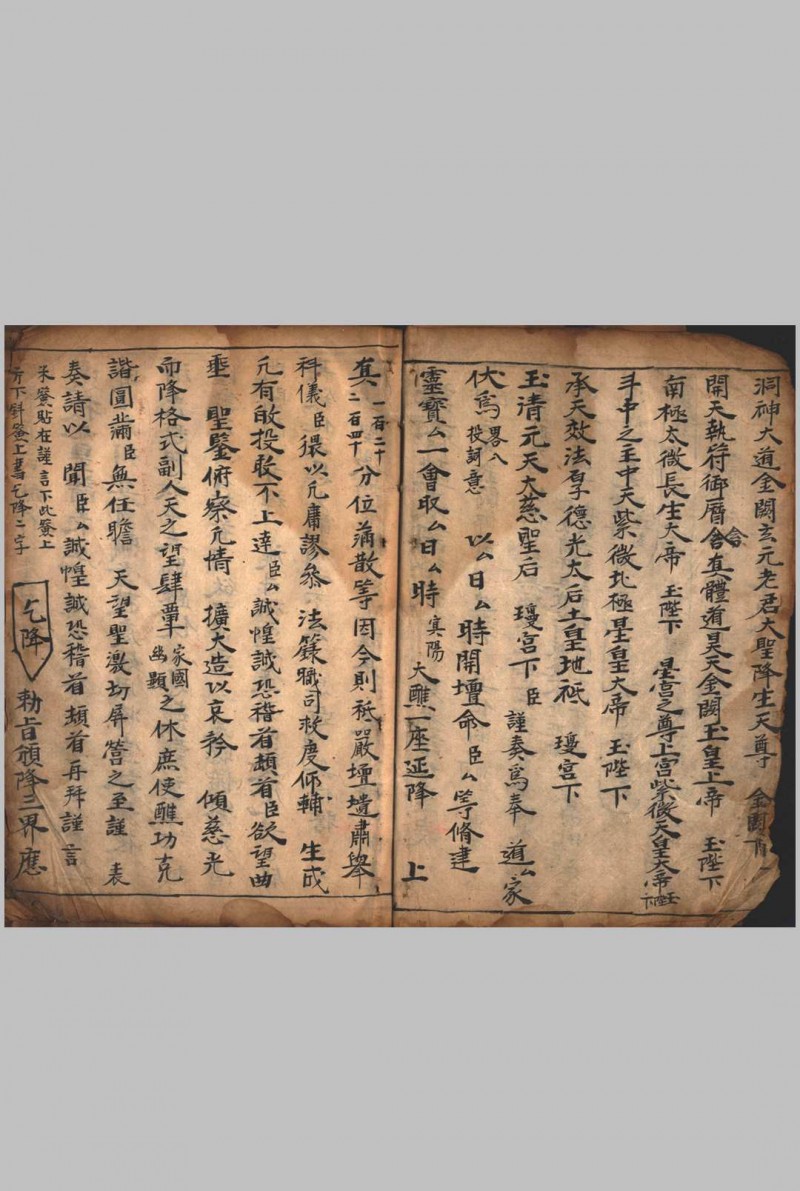 洞神大道金闕玄元老君大聖降生天尊 金闕下
開天執符御曆含真體道昊天金闕玉皇上帝 玉陛下
南極太微長生大帝 玉陛下 星宮之尊上宮紫微天皇大帝 玉陛下
斗中之主中天紫微北極星皇大帝 玉陛下
承天效法厚德光太后土皇地祇 瓊宮下
玉清元天大慈聖后 瓊宮下 臣 謹奏爲奉 道厶家
伏爲 畧入投詞意 以厶日厶時開壇命臣厶等脩建
靈寶厶一會取厶日厶時 寅陽 大醮一座延降 上
真 一百二十 二百四十 分位滿散等因今則祗嚴壇墠肅舉
科儀臣猥以凡庸謬叅 法籙職司救度俾輔 生成
凡有啟投敢不上達臣厶誠惶誠恐稽首頓首臣欲望曲
垂 聖鑒俯察凡情 擴大造以哀矜 傾慈光
而降格式副人天之望肆覃 家國 幽顯 之休庶使醮功克
諧圓滿臣無任瞻 天望聖激切屏營之至謹 表
奏請以 聞臣厶誠惶誠恐稽首頓首再拜謹言
朱簽貼在謹言下此簽上
方下斜簽上書乞降二字
乞降
勅旨頒降三界應